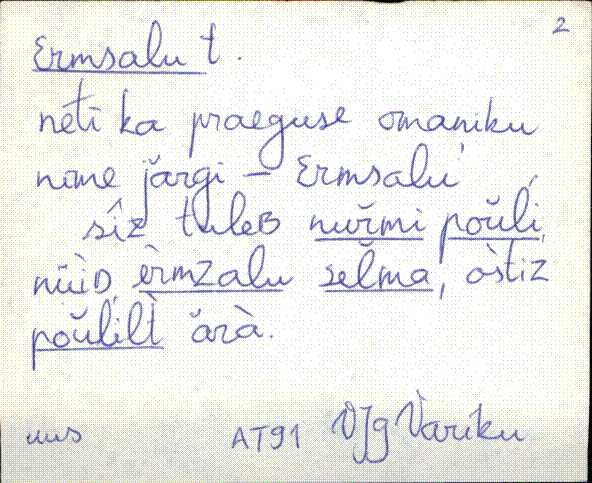 2
Ermsalu t.
neti ka praeguse omaniku
nime järgi – Ermsalu
sîz tuleʙ nuřmi pǒuli,
nüìᴅ, èrmzalu selma, òstiz
pǒulilt̀ ärà.
uus AT91 VJg Variku